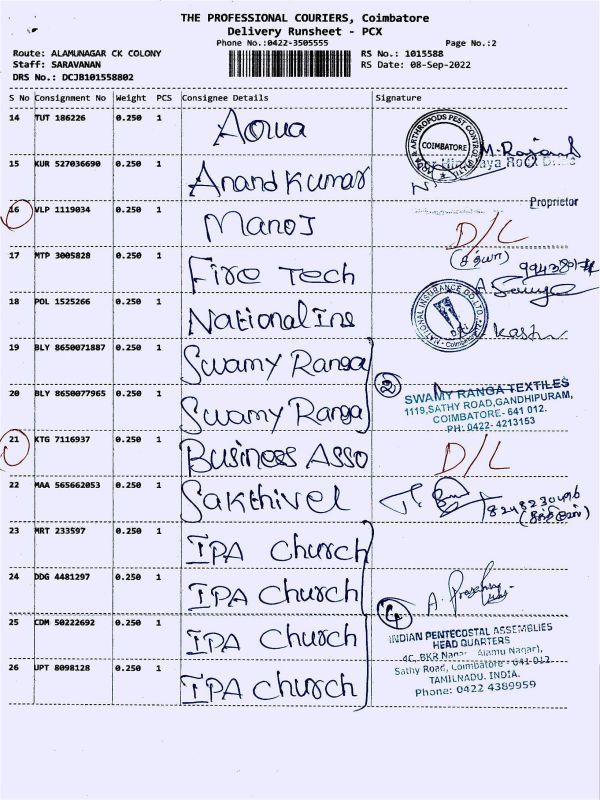 THE PROFESSIONAL COURIERS, Coimbatore
Delivery Runsheet - PCX
Phone No.:0422-3505555 Page No.:2
Route: ALAMUNAGAR CK COLONY RS No.: 1015588
Staff: SARAVANAN RS Date: 08-Sep-2022
DRS No.: DCJB101558802
S No Consignment No Weight PCS Consignee Details Signature
14 TUT 186226 0.250 1 Aqua
COIMBATORE
15 KUR 527036690 0.250 1 Anand Kumar
Proprietor
16 VLP 1119034 0.250 1 Manoj D/L
17 MTP 3005828 0.250 1 Fire Tech
18 POL 1525266 0.250 1 National Ins
NATIONAL INSURANCE CO. LTD.
19 BLY 8650071887 0.250 1 Swamy Ranga
20 BLY 8650077965 0.250 1 Swamy Ranga
2
SWAMY RANGA TEXTILES
1119, SATHY ROAD, GANDHIPURAM,
COIMBATORE- 641 012.
PH: 0422- 4213153
21 KTG 7116937 0.250 1 Business Asso D/L
22 MAA 565662053 0.250 1 Sakthivel
23 MRT 233597 0.250 1 IPA Church
24 DDG 4481297 0.250 1 IPA Church
25 CDM 50222692 0.250 1 IPA Church
26 UPT 8098128 0.250 1 IPA Church
4
INDIAN PENTECOSTAL ASSEMBLIES
HEAD QUARTERS
4C, BKR Nagar Alamu Nagar),
Sathy Road, Coimbatore - 641 012
TAMILNADU. INDIA.
Phone: 0422 4389959